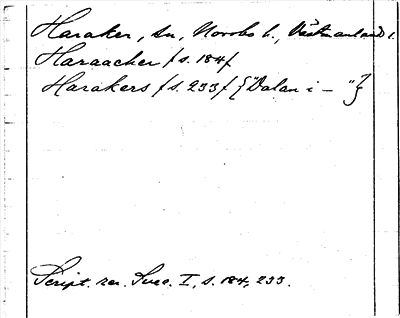 Haraker, sn, Norrbo h., Västmanland l.
Haraacher / s. 184 /
Harakers / s. 233 / {"Dalan i – "}
Script. rer. Svec. I, s. 184, 233.